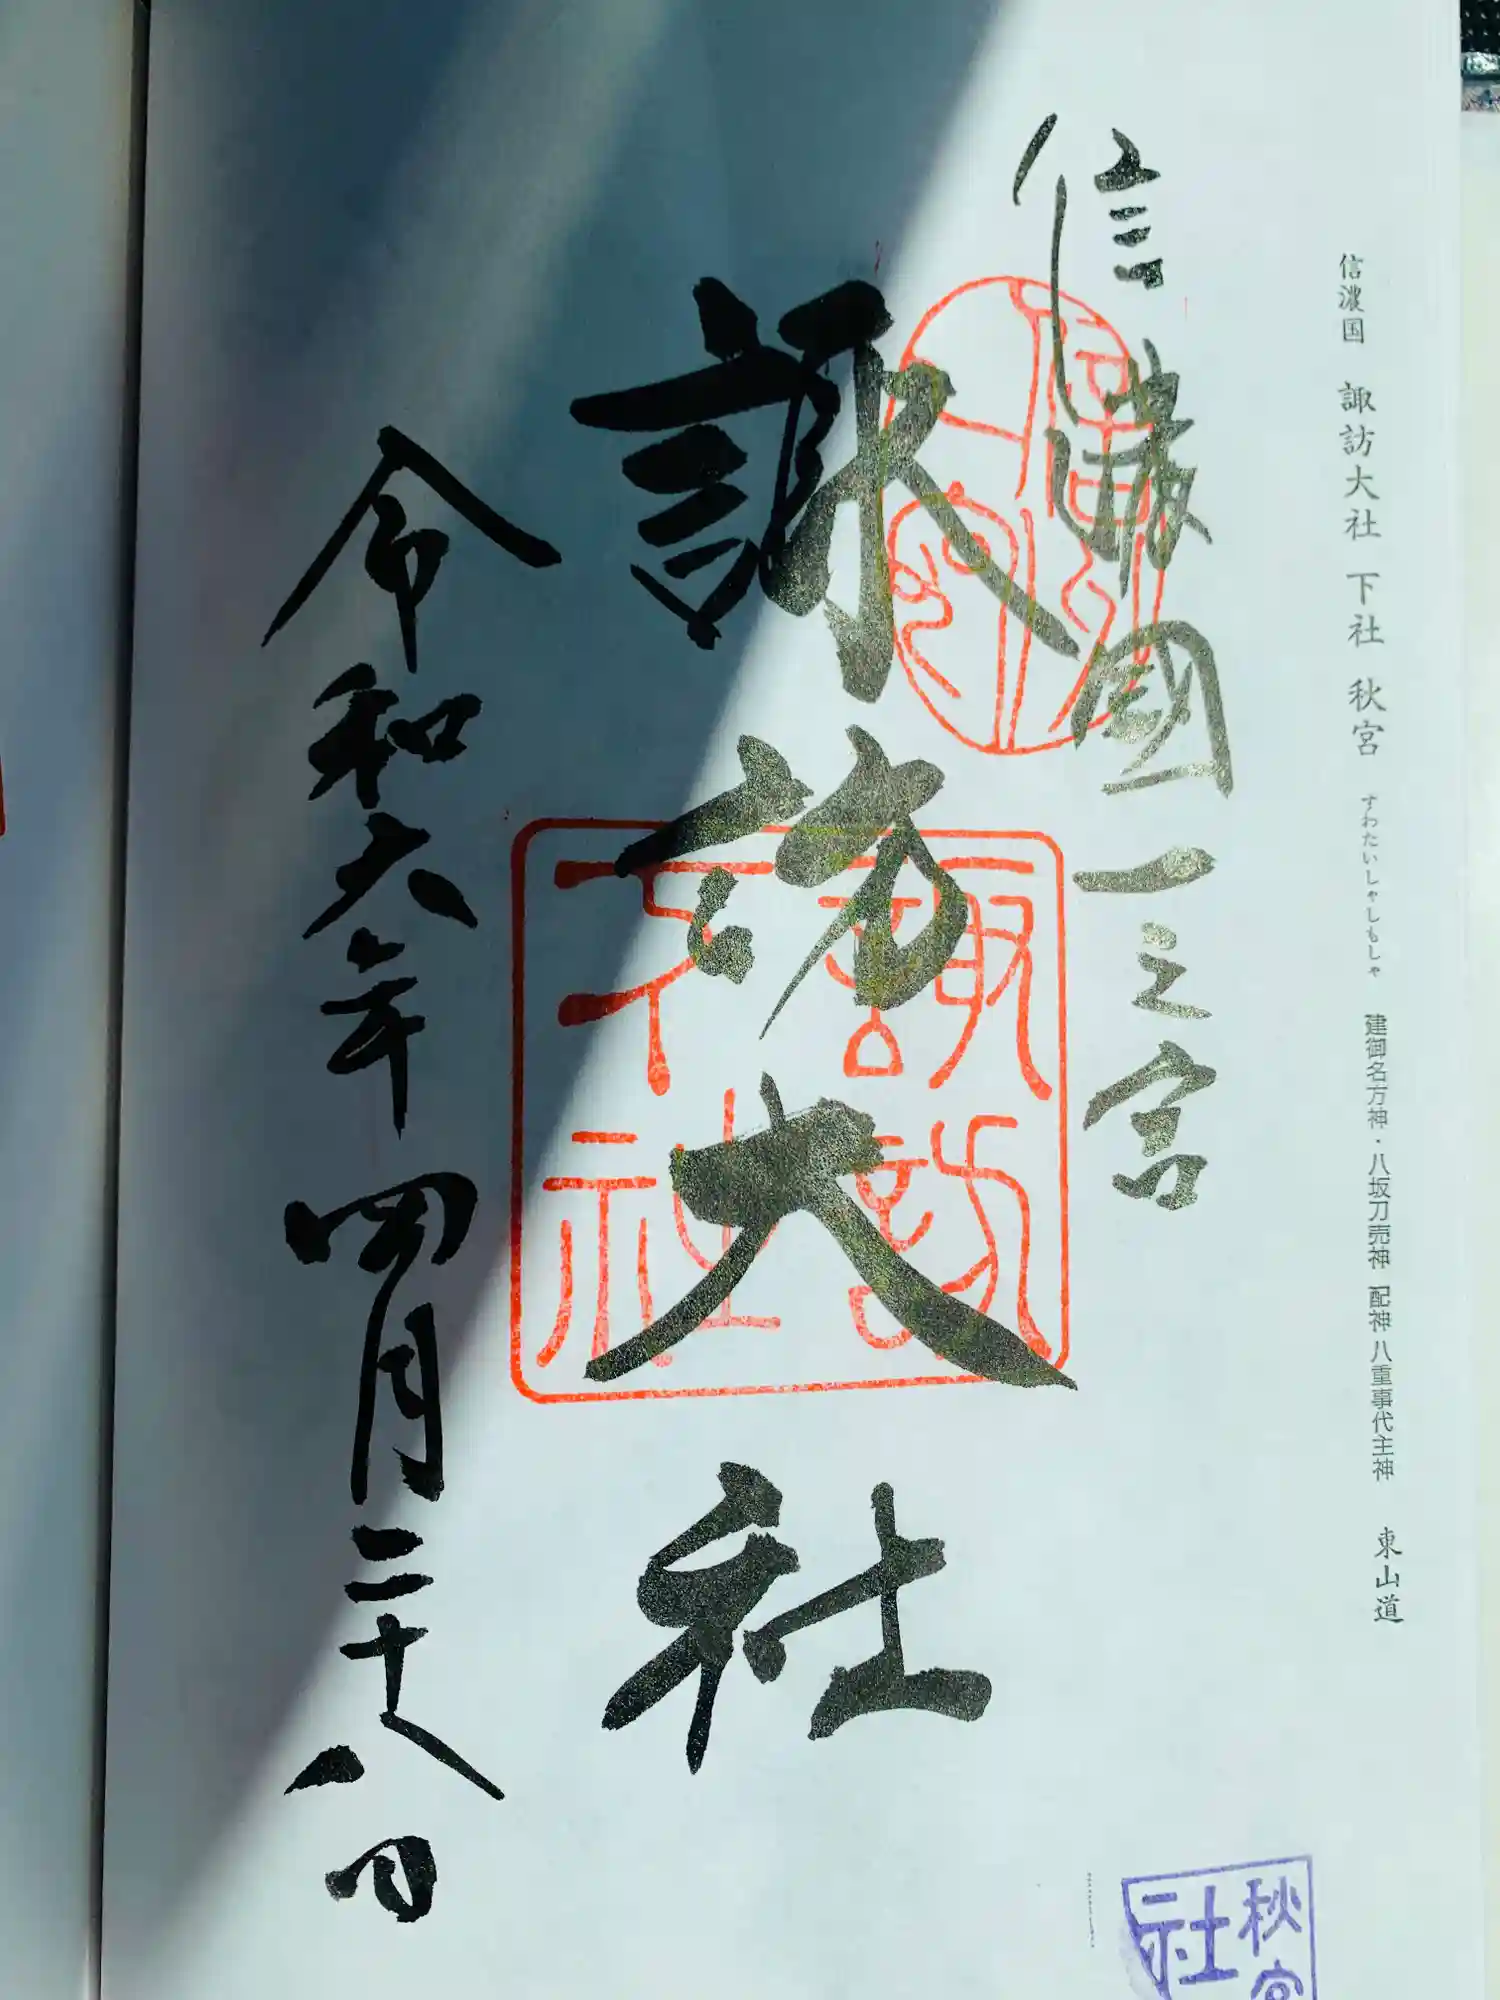 信濃国 諏訪大社 下社 秋宮 すわたいしゃしもしゃ 建御名方神・八坂刀売神 配神 八重事代主神 東山道
信濃國一之宮
諏訪大社
令和六年四月二十八日
諏訪
下社
秋宮
社